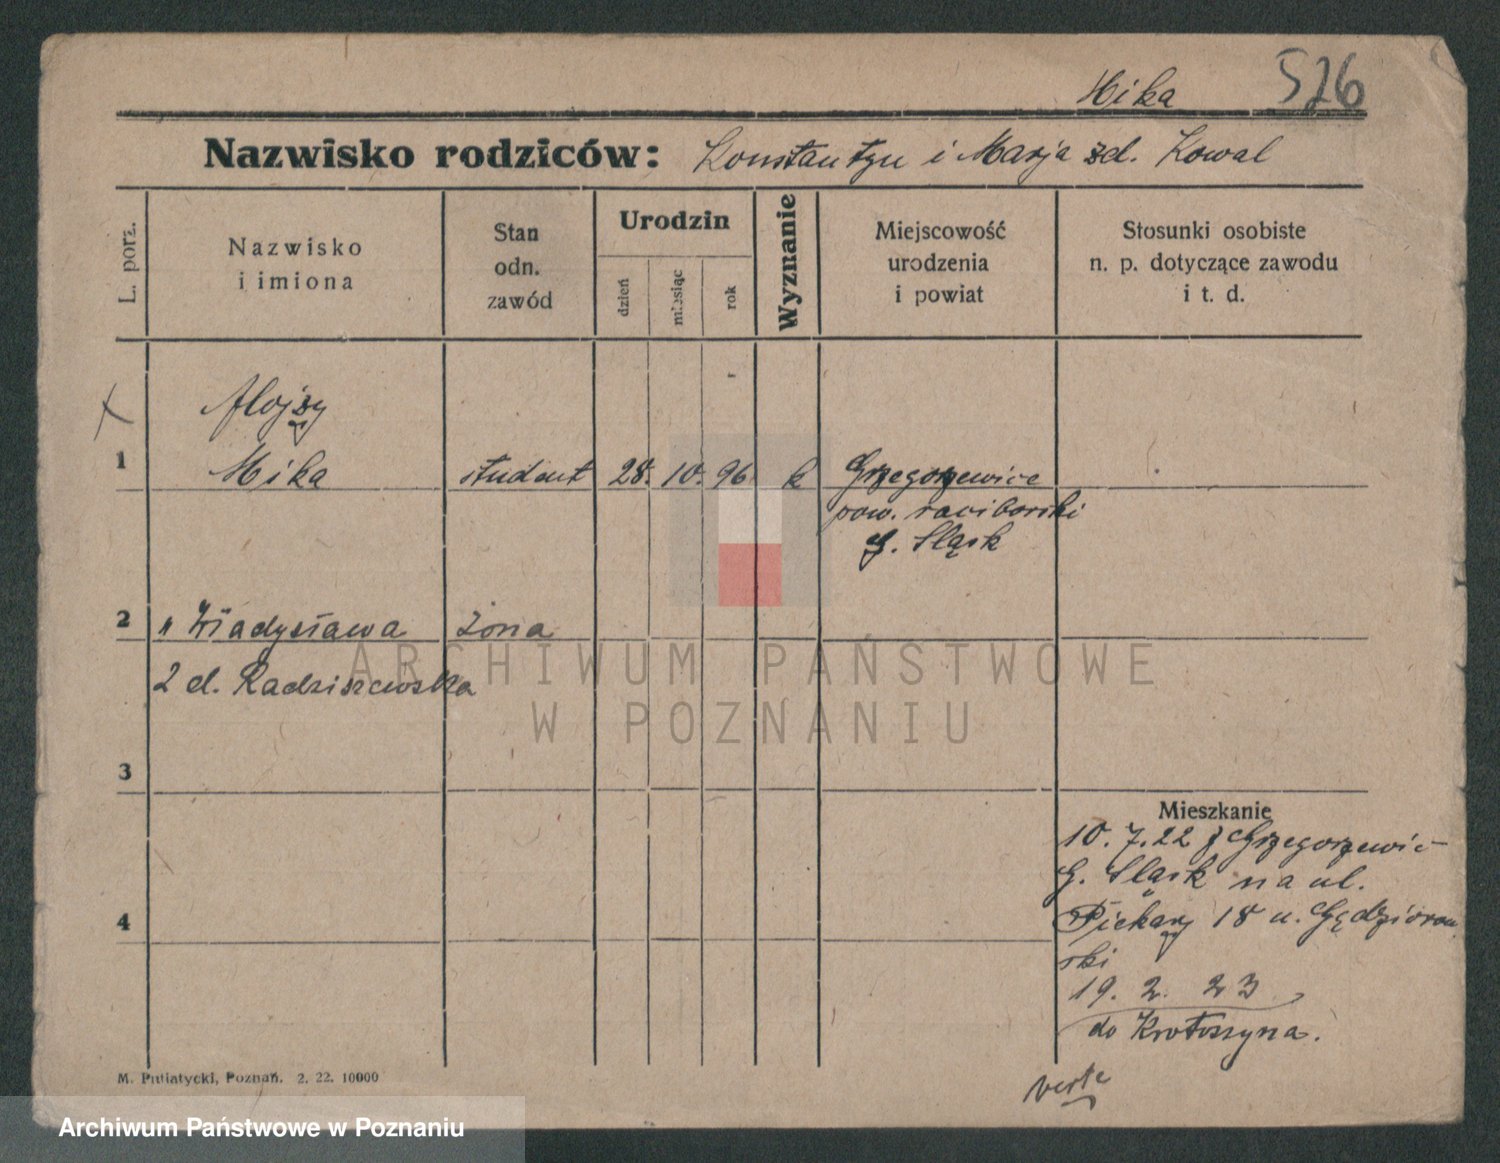 Mika 526
Nazwisko rodziców: Konstantyn i Marja zd. Kowal
L. porz.
Nazwisko
i imiona
Stan
odn.
zawód
Urodzin
dzień
miesiąc
rok
Wyznanie
Miejscowość
urodzenia
i powiat
Stosunki osobiste
n. p. dotyczące zawodu
i t. d.
Alojzy
1 Mika student 28. 10. 96 k Grzegorzewice
pow. raciborski
G. Śląsk
2 " Władysława żona
2 d. Radziszewska
3
Mieszkanie
10. 7. 22 z Grzegorzewic
G. Śląsk na ul.
4
Piekary 18 u. Gędziorow
ski
19. 2. 23
do Krotoszyna.
verte
M. Putiatycki, Poznań. 2. 22. 10000
ARCHIWUM PAŃSTWOWE
W POZNANIU
Archiwum Państwowe w Poznaniu